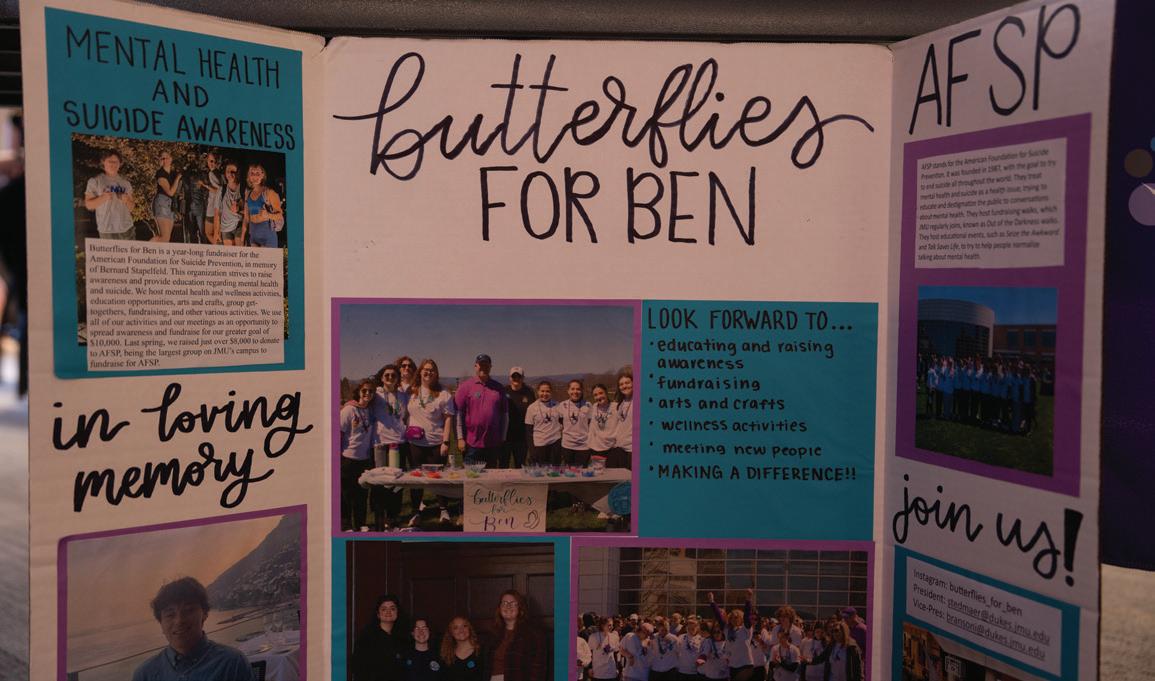 MENTAL HEALTH
AND
SUICIDE AWARENESS
Butterflies for Ben is a year-long fundraiser for the
American Foundation for Suicide Prevention, in memory
of Bernard Stapelfeld. This organization strives to raise
awareness and provide education regarding mental health
and suicide. We host mental health and wellness activities,
education opportunities, arts and crafts, group get-
togethers, fundraising, and other various activities. We use
all of our activities and our meetings as an opportunity to
spread awareness and fundraise for our greater goal of
$10,000. Last spring, we raised just over $8,000 to donate
to AFSP, being the largest group on JMU's campus to
fundraise for AFSP.
in loving
memory
butterflies
FOR BEN
butterflies
for
Ben
LOOK FORWARD TO...
• educating and raising
awareness
• fundraising
• arts and crafts
• wellness activities
meeting new people
• MAKING A DIFFERENCE!!
AFSP
AFSP stands for the American Foundation for Suicide
Prevention. It was founded in 1987, with the goal to try
to end suicide all throughout the world. They treat
mental health and suicide as a health issue, trying to
educate and destigmatize the public to conversations
about mental health. They host fundraising walks, which
JMU regularly joins, known as Out of the Darkness walks.
They host educational events, such as Seize the Awkward
and Talk Saves Life, to try to help people normalize
talking about mental health.
join us!
Instagram: butterflies_for_ben
President: stedmaer@dukes.jmu.edu
Vice-Pres: bransonl@dukes.jmu.edu